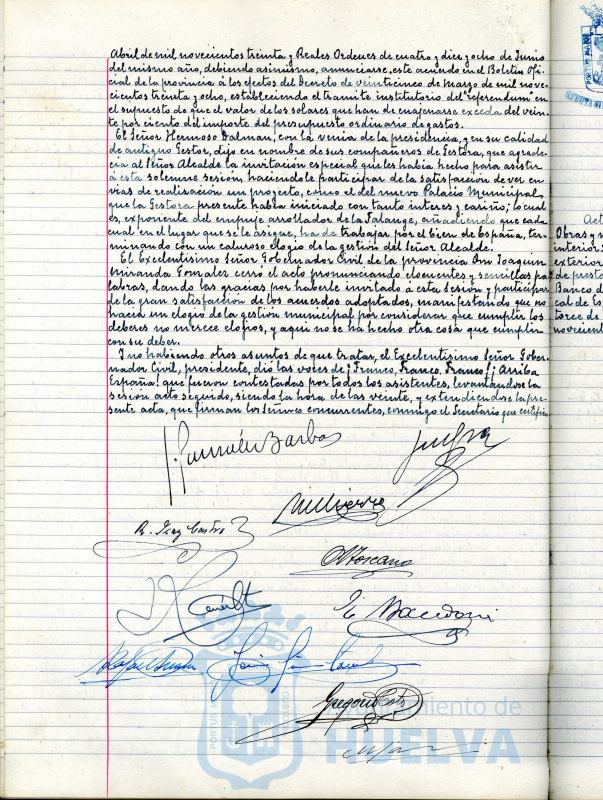 Abril de mil novecientos treinta y Reales Ordenes de cuatro y diez y ocho de Junio
del mismo año, debiendo asimismo, anunciarse, este acuerdo en el Boletín Ofi-
cial de la provincia á los efectos del Decreto de veinticinco de Marzo de mil nove-
cientos treinta y ocho, estableciendo el tramite institutorio del referendum en
el supuesto de que el valor de los solares que han de enajenarse exceda del vein-
te por ciento del importe del presupuesto ordinario de gastos.
El Señor Hermoso Dalman, con la venia de la presidencia, y en su calidad
de antiguo Gestor, dijo en nombre de sus compañeros de Gestora, que agrade-
cia al Señor Alcalde la invitación especial que les habia hecho para asistir
á esta solemne sesión, haciendole participar de la satisfacción de ver en
vias de realisación un proyecto, como el del nuevo Palacio Municipal,
que la Gestora presente habia iniciado con tanto interes y cariño; lo cual
es, exponente del empuje arrollador de la Falange, añadiendo que cada
cual en el lugar que se le asigue, ha de trabajar por el bien de España, ter-
minando con un caluroso elogio de la gestión del Señor Alcalde.
El Excelentisimo Señor Gobernador Civil de la provincia Don Joaquin
Miranda Gonzales cerró el acto pronunciando elocuentes y sencillas pa-
labras, dando las gracias por haberle invitado á esta Sesión y participar
de la gran satisfacción de los acuerdos adoptados, manifestando que no
hacia un elogio de la gestión municipal por considerar que cumplir los
deberes no merece elogios, y aqui no se ha hecho otra cosa que cumplir
con su deber.
Y no habiendo otros asuntos de que tratar, el Excelentisimo Señor Gober-
nador Civil, presidente, dió las voces de ¡Franco, Franco, Franco! ¡Arriba
España! que fueron contestadas por todos los asistentes, levantandose la
sesión acto seguido, siendo la hora de las veinte, y extendiendose la pre-
sente acta, que firman los Señores concurrentes, conmigo el Secretario que certifico
R. Diaz Castro
A. Toscano
Ayuntamiento de
HUELVA
Act
Obras y s
interior:
exterior
de presto
Banco d
cal de Co
torce de
novecient